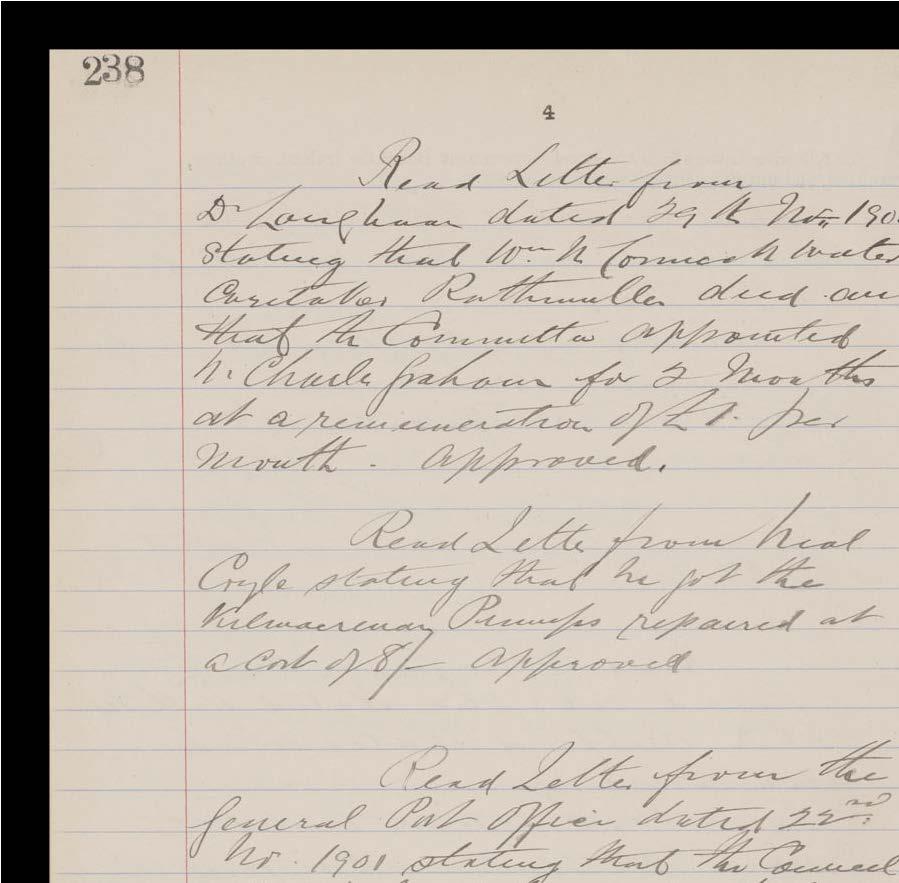 238
4
Read Letter from
Dr Loughnan dated 29th Nov. 190
stating that Wm McCormack Water
Caretaker Rathmullen died an
that the Committee appointed
Mr Charles Graham for 2 Months
at a remuneration of £1. per
Month. Approved.
Read Letter from Neal
Coyle stating that he got the
Kilmacrenan Pumps repaired at
a cost of 8/- Approved
Read Letter from the
General Post Office dated 22nd
Nov. 1901 stating that the Council